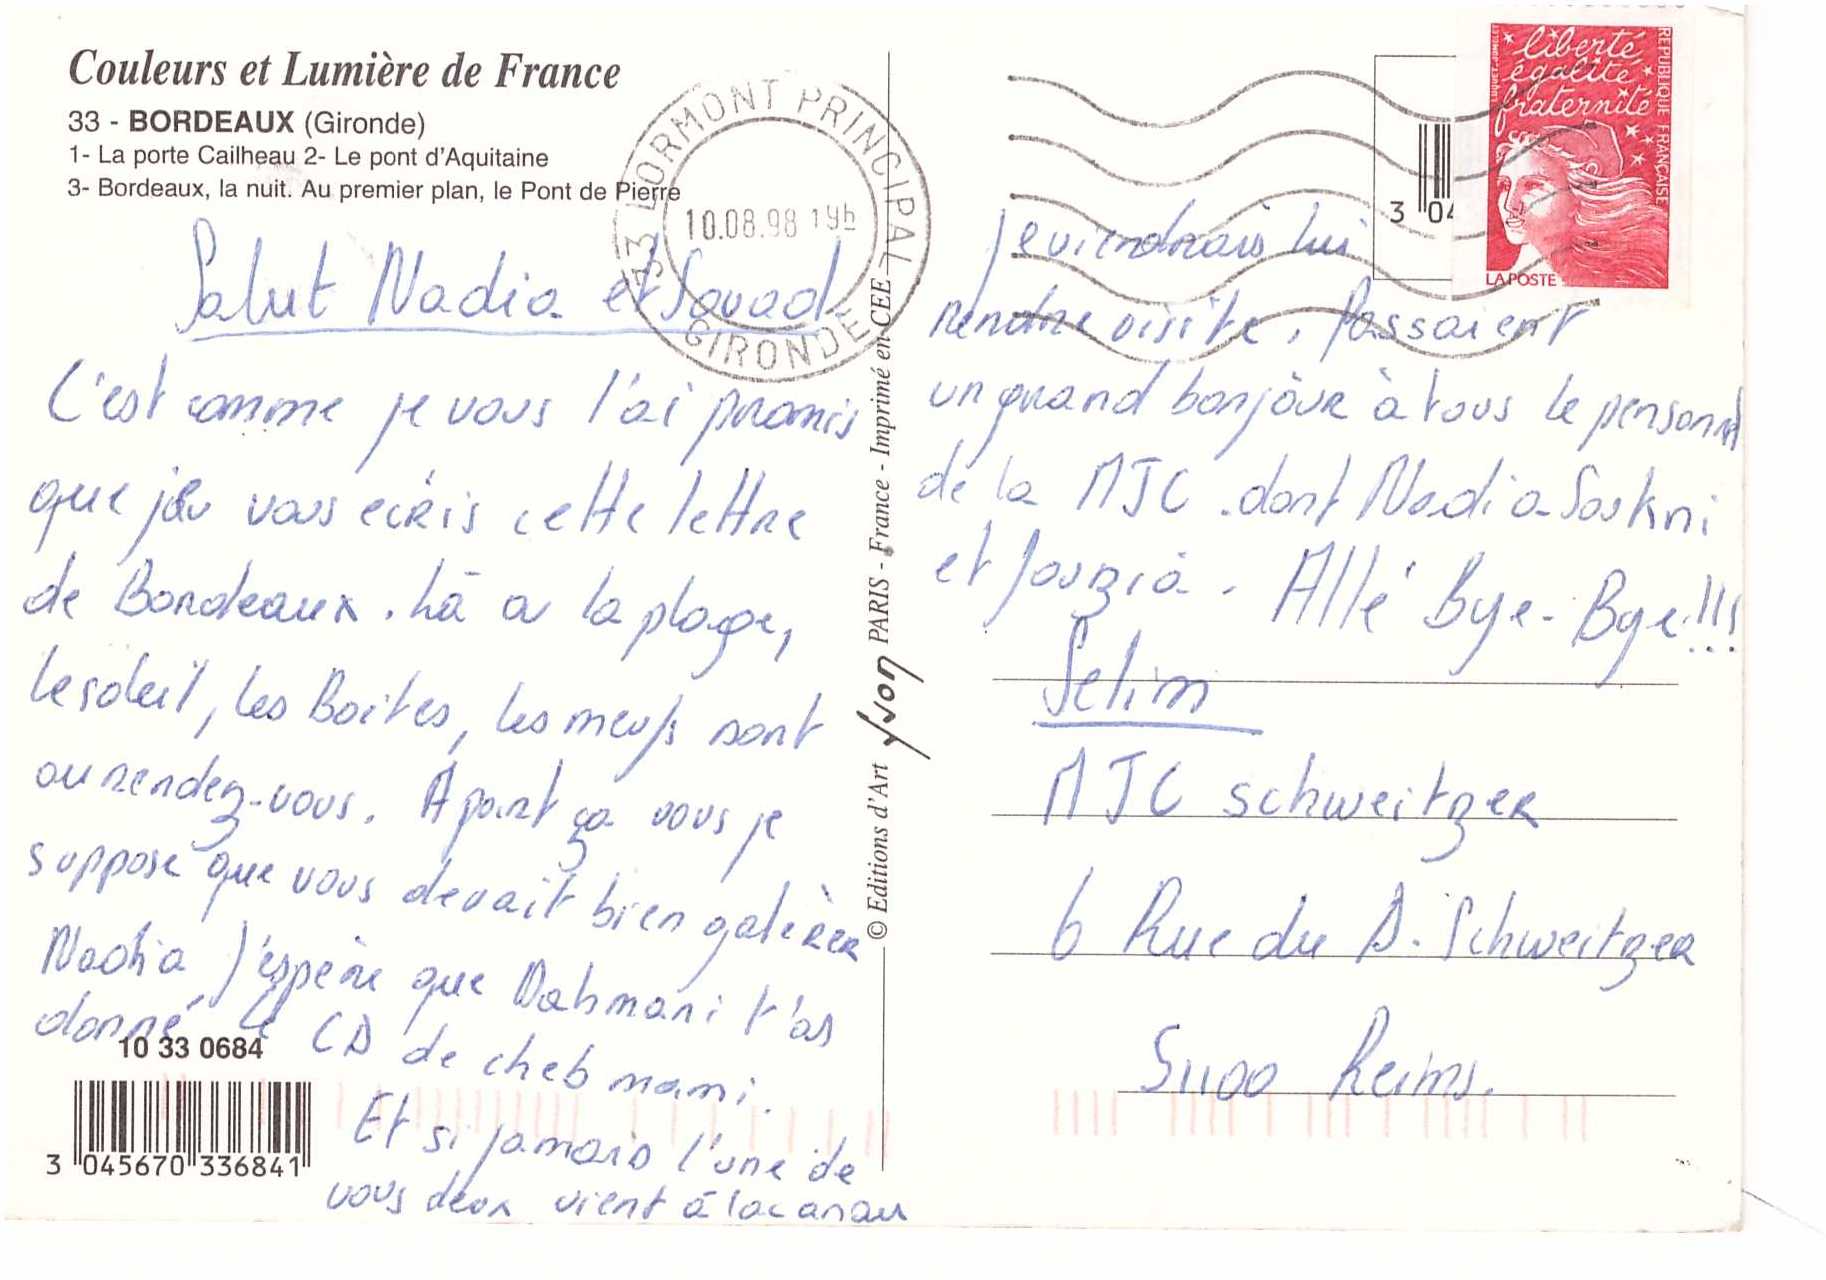 Couleurs et Lumière de France
33 - BORDEAUX (Gironde)
1- La porte Cailheau 2- Le pont d'Aquitaine
3- Bordeaux, la nuit. Au premier plan, le Pont de Pierre
Salut Nadia et Souad
C'est comme je vous l'ai promis
que vous ecris cette lettre
de Bordeaux. Là a la plage,
le soleil, les Boites, les meufs sont
au rendez-vous. A part ça vous je
suppose que vous devait bien galèrer
Nadia J'espère que Dahmani t'as
donné le CD de cheb mami.
Et si jamais l'une de
vous deux vient à lacanau
10 33 0684
3 045670 336841
33 LORMONT PRINCIPAL
10.08.98 19h
GIRONDE
© Editions d'Art yvon PARIS - France - Imprimé en CEE
liberté
égalité
fraternité
REPUBLIQUE FRANÇAISE
LA POSTE
3 04
je viendrais lui
rendre visite. Passaient
un grand bonjour à tous le personnel
de la MJC. dont Nadia
et fouzia. Allé Bye-Bye!!!
Selim
MJC schweitzer
6 Rue du D. Schweitzer
51100 Reims.